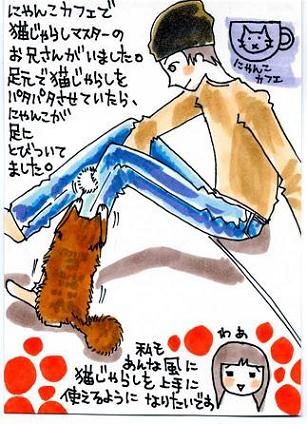 にゃんこカフェで
猫じゃらしマスターの
お兄さんがいました。
足元で猫じゃらしを
パタパタさせていたら、
にゃんこが
足に
とびついて
ました。
にゃんこ
カフェ
わぁ
私も
あんな風に
猫じゃらしを上手に
使えるように なりたいです